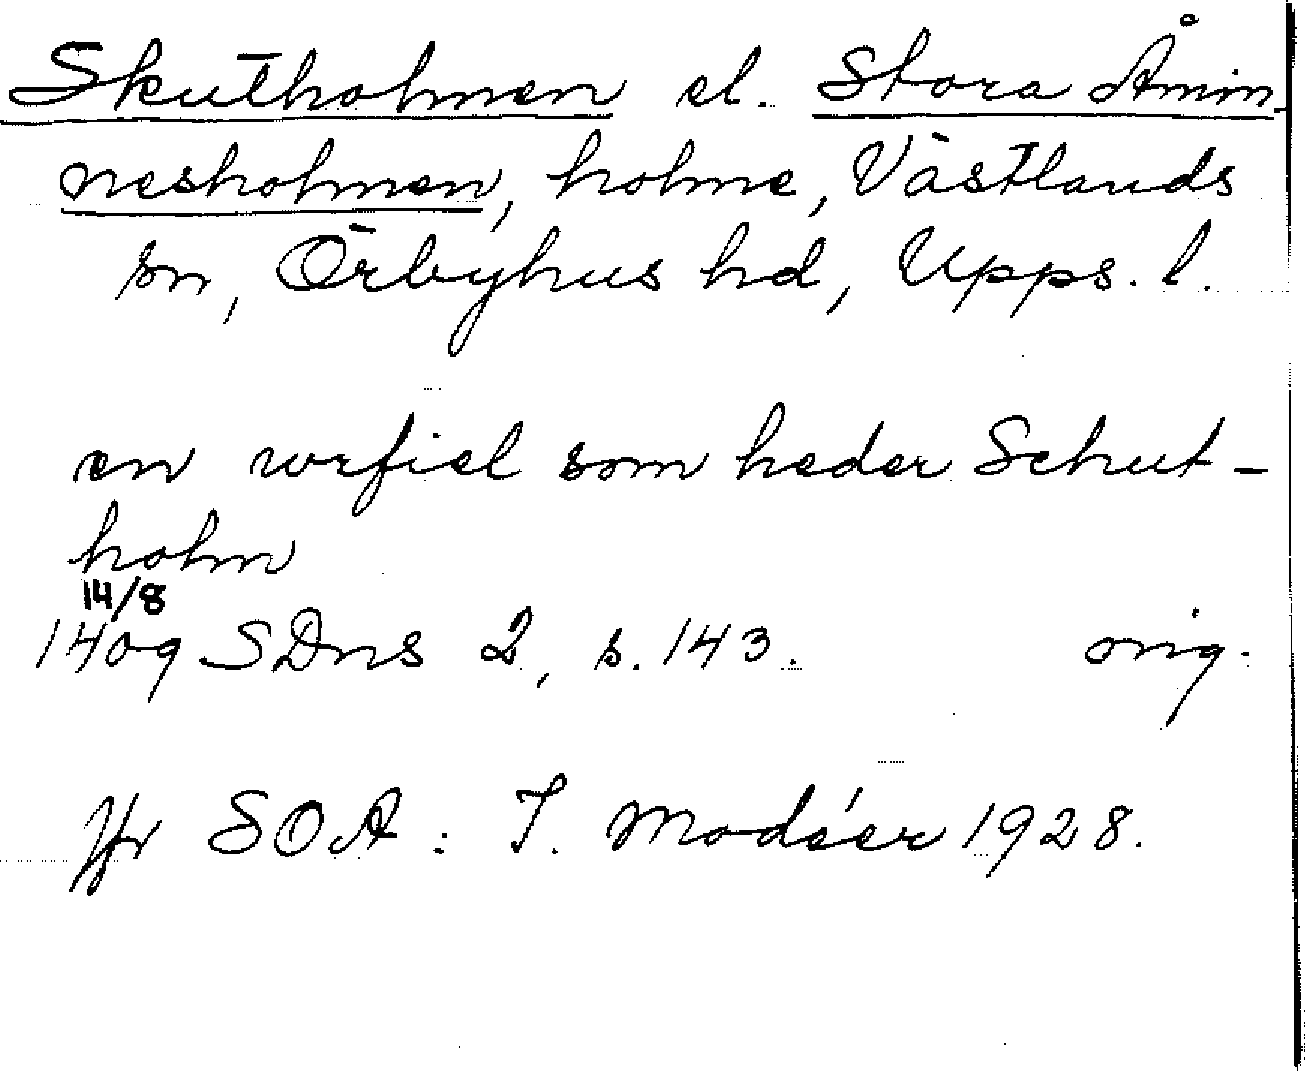 Skutholmen el. Stora Åmin
nesholmen, holme, Västlands
sn, Örbyhus hd, Upps. l.
en werfiel som heder Schut-
holm
14/8
1409 SDns 2, s. 143. orig.
Jfr SOA: I. Modéer 1928.